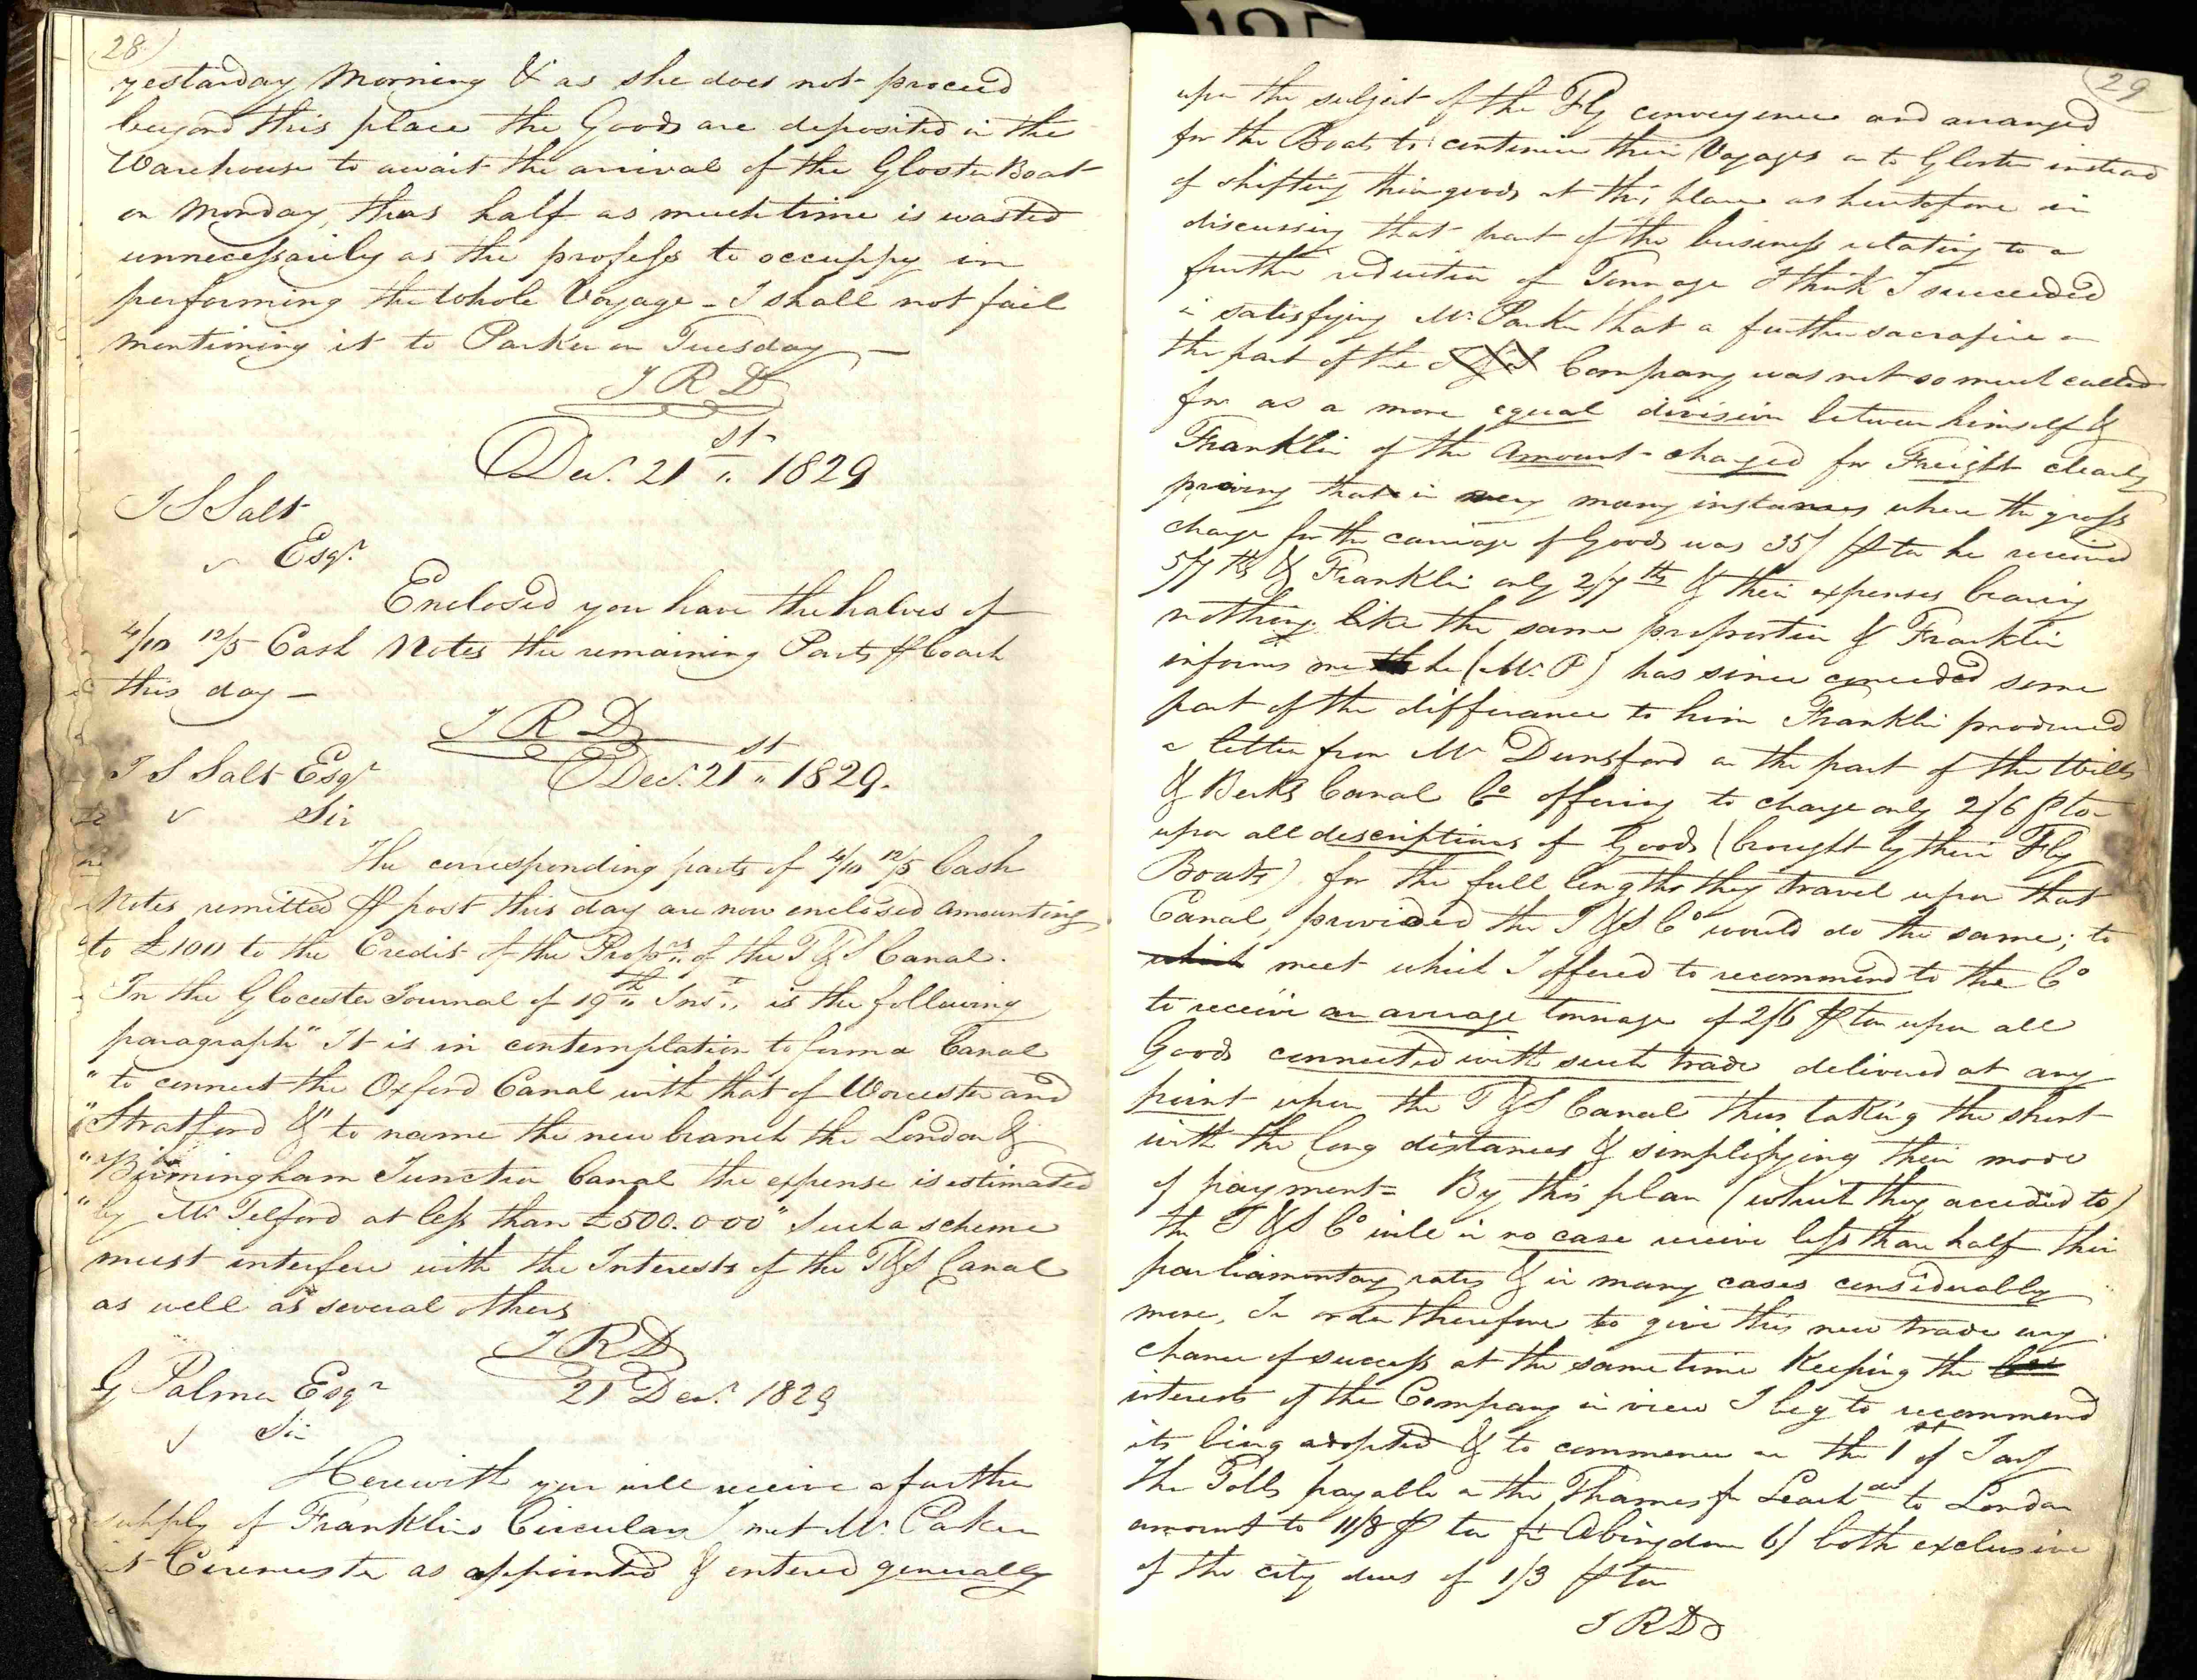 28
yestarday Morning & as she does not proceed
beyond this place the Goods are deposited in the
Warehouse to await the arrival of the Gloster Boat
on Monday, thus half as much time is wasted
unnecessarily as the profess to occuppy in
performing the whole Voyage - I shall not fail
mentioning it to Parker on Tuesday —
J R D
Decr. 21st 1829
J S Salt
Esqr.
Enclosed you have the halves of
4/10 12/5 Cash Notes the remaining Parts ⅌ Coach
this day —
J R D
J S Salt Esqr Decr. 21st 1829.
Sir
The corresponding parts of 4/10 12/5 Cash
Notes remitted ⅌ post this day are now enclosed amounting
to £100 to the Credit of the Proprs. of the T & S Canal.
In the Glocester Journal of 19th Inst., is the following
paragraph "It is in contemplation to form a Canal
"to connect the Oxford Canal with that of Worcester and
"Stratford & to name the new branch the London &
"Birmingham Junction Canal the expense is estimated
"by Mr Telford at less than £500.000" Such a scheme
must interfere with the Interests of the T & S Canal
as well as several others
J R D
G Palmer Esqr 21 Decr. 1829
Sir
Herewith you will receive a further
supply of Franklins Circulars I met Mr. Parker
at Cirencester as appointed & entered generally
29
upon the subject of the Fly conveyence and arranged
for the Boats to continue their Voyages on to Gloster instead
of shifting their goods at this place as heretofore in
discussing that part of the business relating to a
further reduction of Tonnage I think I succeeded
in satisfying Mr. Parker that a further sacrafice on
the part of the T & S Company was not so much called
for as a more equal division between himself &
Franklin of the Amount charged for Freight clearly
proving that in very many instances where the gross
charge for the carriage of Goods was 35/ ⅌ ton he received
5/7ths & Franklin only 2/7ths & their expenses bearing
nothing like the same proportion & Franklin
informs me he (Mr. P) has since conceeded some
part of the differance to him Franklin produced
a letter from Mr Dunsford on the part of the Wilts
& Berks Canal Co offering to charge only 2/6 ⅌ ton
upon all descriptions of Goods (brought by their Fly
Boats) for the full lengths they travel upon that
Canal, provided the T & S Co would do the same; to
which meet which I offered to recommend to the Co
to receive an average tonnage of 2/6 ⅌ ton upon all
Goods connected with such trade delivered at any
point upon the T & S Canal thus taking the short
with the long distances & simplifying their mode
of payment = By this plan (which they acceded to)
the T & S Co will in no case receive less than half their
parliamentary rates & in many cases considerably
more, In order therefore to give this new trade any
chance of success at the same time Keeping the
interests of the Company in view I beg to recommend
its being adopted & to commence on the 1st of Jany
The Tolls payable on the Thames fm Leachde to London
amount to 11/8 ⅌ ton fm Abingdon 6/ both exclusive
of the city dues of 1/3 ⅌ ton
J R D